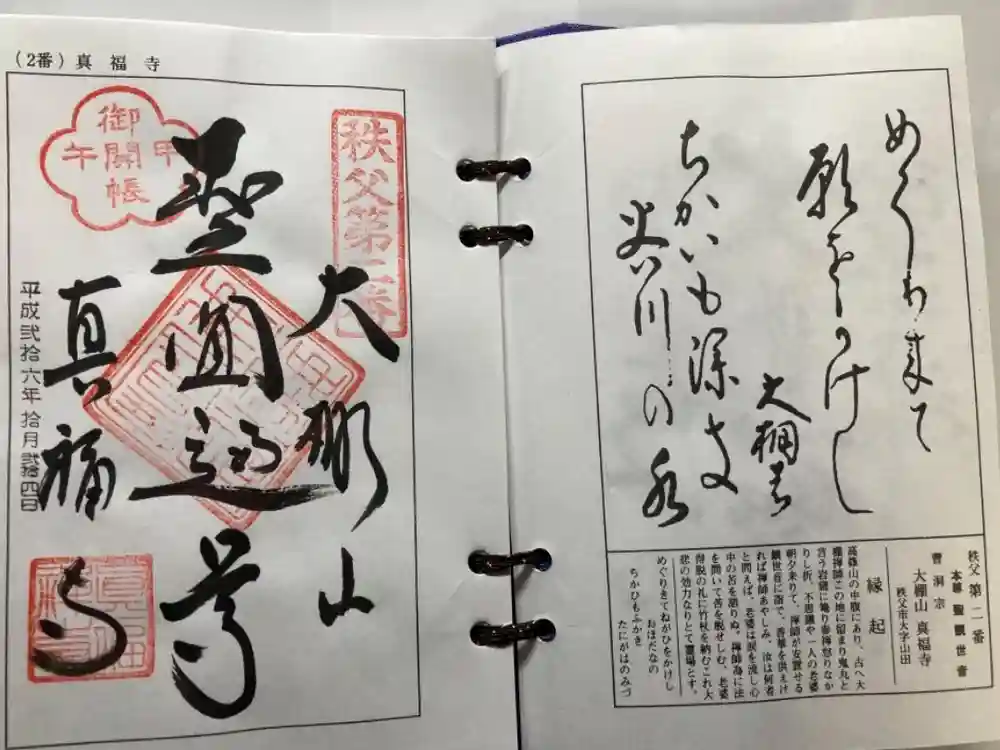 (2番) 真福寺
秩父第二番
御開帳
甲
午
大棚山
聖圓通尊
真福寺
平成弐拾六年拾月弐拾四日
めくり来て
願をかけし
大棚の
ちかいも深き
谷川の水
秩父 第二番
本尊 聖観世音
曹洞宗
大棚山 真福寺
秩父市大字山田
縁起
高篠山の中腹にあり、古へ大
棚禅師この地に留まり鬼丸と
言う岩窟に
りし折、不思議や一人の老婆
朝夕来りて、禅師が安置せる
観世音に詣で、香華を供えけ
れば禅師あやしみ、汝は何者
と問えば、老婆は涙を流し心
中の苦を語りぬ。禅師為に法
を聞いて苦を脱せしむ、老婆
得脱の礼に竹杖を納むこれ大
悲の効力なりとて霊場とす。
めぐりきてねがひをかけし
おほだなの
ちかひもふかき
たにがはのみづ